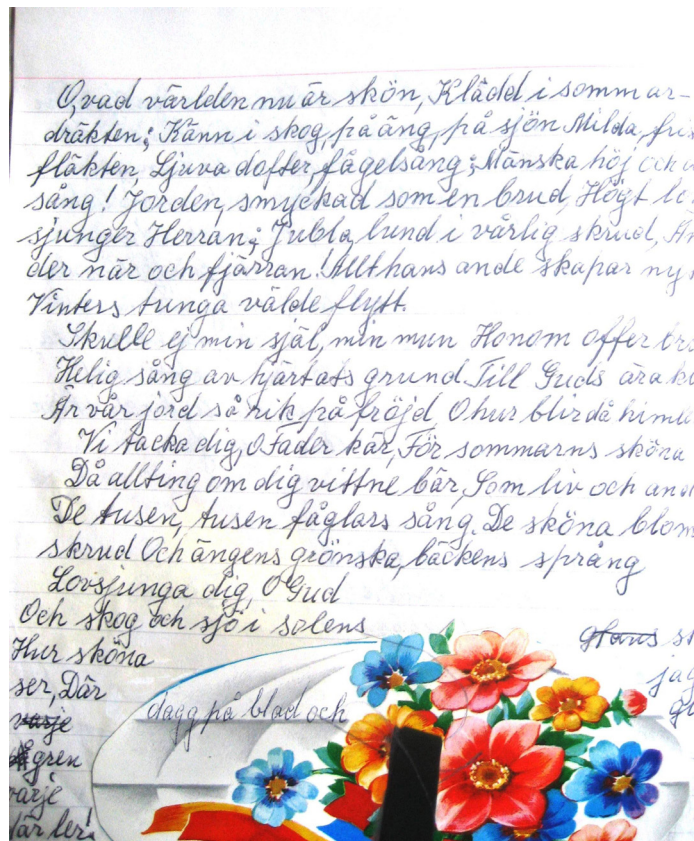 O, vad världen nu är skön, Klädd i sommar-
dräkten; Känn i skog, på äng, på sjön Milda,
fläkten, Ljuva dofter, fågelsång; Mänska höj och
sång! Jorden, smyckad som en brud, Högt
sjunger Herran; Jubla, lund i vårlig skrud,
der när och fjärran! Allt hans ande skapar
Vinters tunga välde flytt.
Skulle ej min själ, min mun Honom offer
Helig sång av hjärtats grund Till Guds ära
Är vår jord så rik på fröjd O hur blir då
Vi tacka dig, O Fader kär, För sommarns sköna
Då allting om dig vittne bär, Som liv och
De tusen, tusen fåglars sång. De sköna
skrud Och ängens grönska, bäckens språng
Lovsjunga dig, O Gud
Och skog och sjö i solens glans
Hur sköna
ser, Där jag
varje dagg på blad och
gren
varje
lär ler!